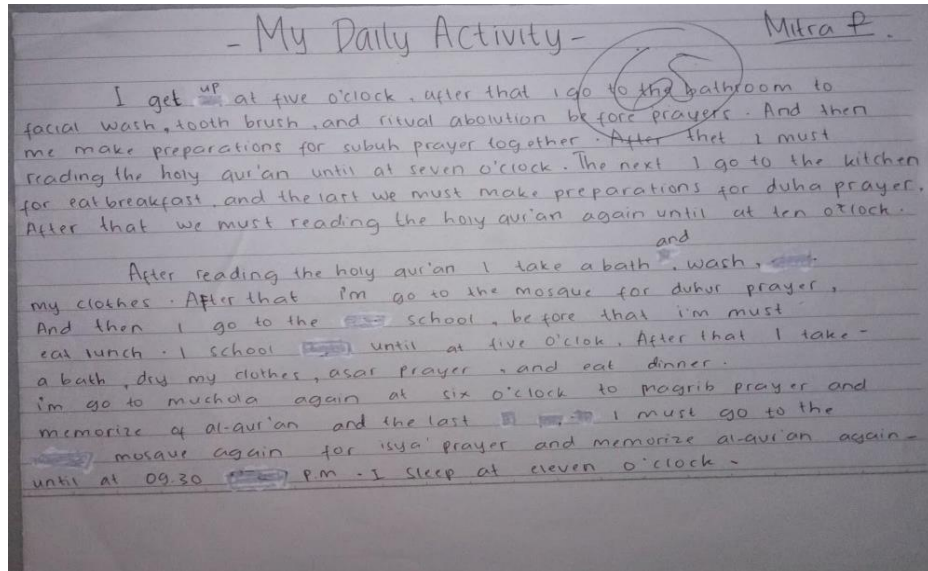 - My Daily Activity -
Mitra P.
I get up at five o'clock. after that i go to the bathroom to
facial wash, tooth brush, and ritual abolution before prayers. And then
me make preparations for subuh prayer together. After thet I must
reading the holy qur'an until at seven o'clock. The next I go to the kitchen
for eat breakfast, and the last we must make preparations for duha prayer.
After that we must reading the holy qur'an again until at ten o'clock.
and
After reading the holy qur'an I take a bath, wash,
my clothes. After that i'm go to the mosque for duhur prayer,
And then i go to the school, before that i'm must
eat lunch. I school until at five o'clok. After that I take -
a bath, dry my clothes, asar prayer, and eat dinner.
i'm go to muchola again at six o'clock to magrib prayer and
memorize of al-qur'an and the last I must go to the
mosque again for isya' prayer and memorize al-qur'an again -
until at 09.30 p.m. I sleep at eleven o'clock -